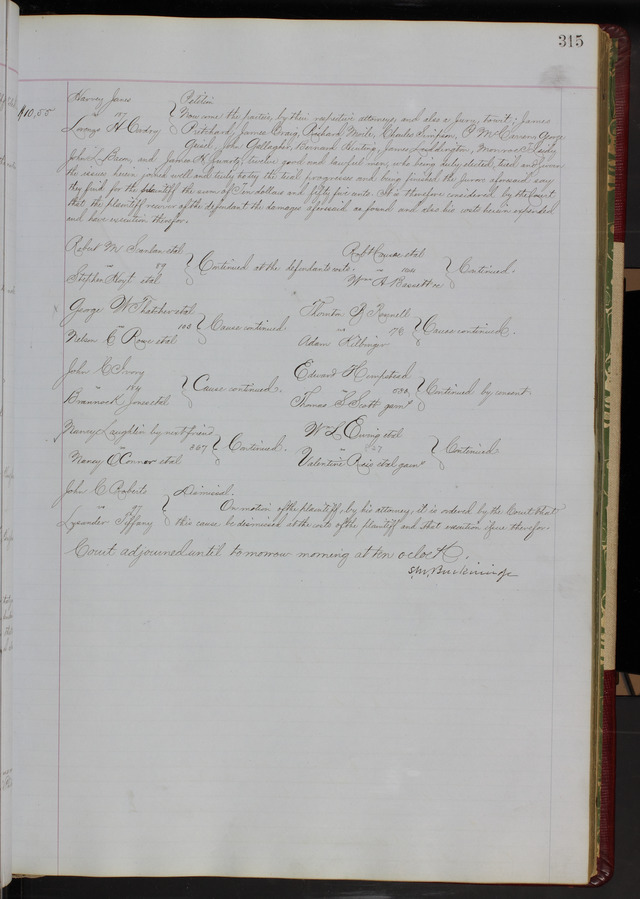 315
Harvey Jones } Petition
$10,55
vs Now come the parties by their respective attorneys and also a Jury, towit; James
George H Pritchard, James Craig, Richard Charles Simpson, George
John Gallagher, Bernard James
John L and James twelve good and lawful men, who being duly elected, tried and sworn
the issues herein joined well and truly to try the trial progresses and being finished the Jurors aforesaid say
they find for the plaintiff the sum of Ten dollars and fifty five cents. It is therefore considered by the Court
that the plaintiff recover of the defendant the damages aforesaid so found and also his costs herein expended
and have execution therefor.
Robert M et al
vs 89 } Continued at the defendants costs.
Stephen Hoyt et al
et al
vs 104 } Continued.
Wm A
George W Thatcher et al
vs 103 } Cause continued.
Nelson C et al
Thornton
vs 76 } Cause continued.
Adam
John C Ivory
vs } Cause continued.
Brannock Jones et al
Edward Hempstead
vs } Continued by consent.
Thomas S Scott garne
Nancy Laughlin by next friend
vs 367 } Continued.
Nancy O'Connor et al
Wm L Ewing et al
vs } Continued
Valentine et al garne
John C Roberts } Dismissal.
vs On motion of the plaintiff, by his attorney, it is ordered by the Court that
Lysander Tiffany this cause be dismissed at the costs of the plaintiff and that execution issue therefor.
Court adjourned until tomorrow morning at ten oclock.